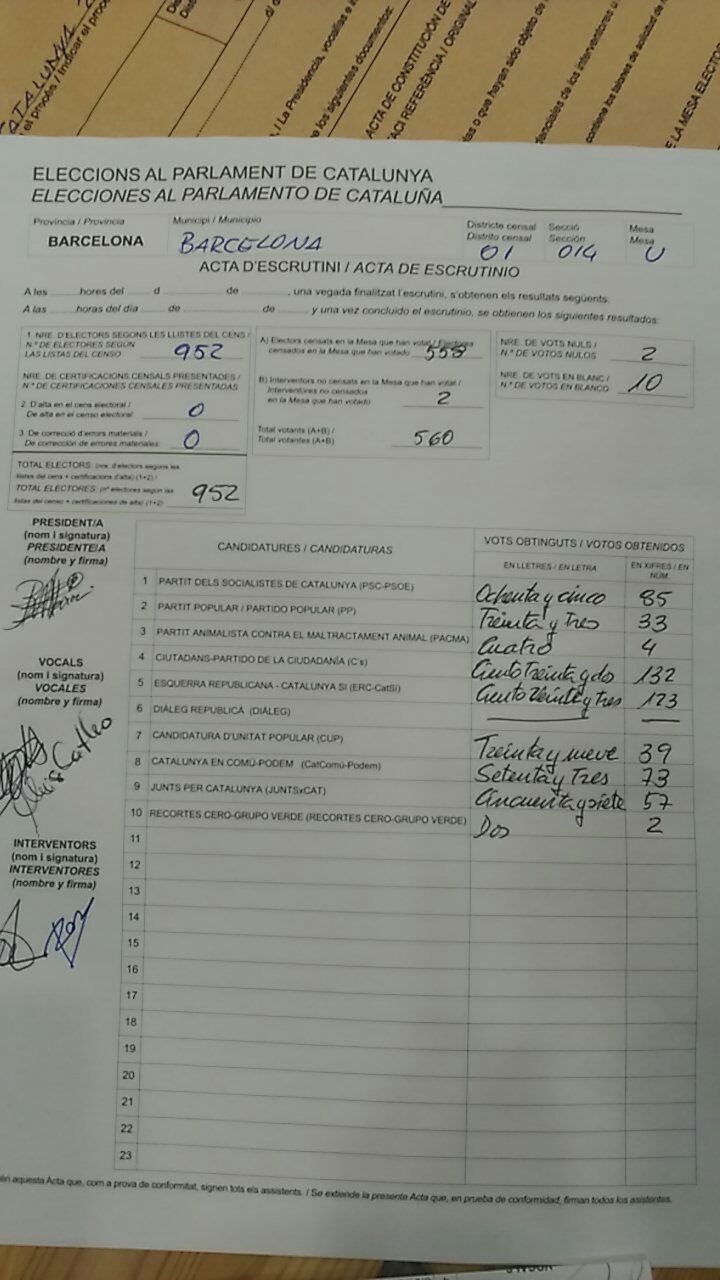 CATALUNYA
el procés / Indicar el proc
/ La Presidencia, vocalías e i
e los siguientes documentos:
ACTA DE CONSTITUCIÓN DE
TACI REFERÈNCIA / ORIGINAL
las o que hayan sido objeto de
denciales de los interventores
E LA MESA ELECTO
ELECCIONS AL PARLAMENT DE CATALUNYA
ELECCIONES AL PARLAMENTO DE CATALUÑA
Província / Provincia Municipi / Municipio Districte censal Secció Mesa
Distrito censal Sección Mesa
BARCELONA BARCELONA 01 014 U
ACTA D'ESCRUTINI / ACTA DE ESCRUTINIO
A les ........ hores del ........ d ........ de ........, una vegada finalitzat l'escrutini, s'obtenen els resultats següents:
A las ........ horas del día ........ de ........ de ........ y una vez concluido el escrutinio, se obtienen los siguientes resultados:
1. NRE. D'ELECTORS SEGONS LES LLISTES DEL CENS /
N.º DE ELECTORES SEGÚN
LAS LISTAS DEL CENSO 952
NRE. DE CERTIFICACIONS CENSALS PRESENTADES /
N.º DE CERTIFICACIONES CENSALES PRESENTADAS
2. D'alta en el cens electoral /
De alta en el censo electoral: 0
3. De correcció d'errors materials /
De corrección de errores materiales: 0
TOTAL ELECTORS: (nre. d'electors segons les
llistes del cens + certificacions d'alta) (1+2) /
TOTAL ELECTORES: (nº electores según las
listas del censo + certificaciones de alta) (1+2) 952
A) Electors censats en la Mesa que han votat / Electores
censados en la Mesa que han votado 558
B) Interventors no censats en la Mesa que han votat /
Interventores no censados
en la Mesa que han votado 2
Total votants (A+B) /
Total votantes (A+B) 560
NRE. DE VOTS NULS /
N.º DE VOTOS NULOS 2
NRE. DE VOTS EN BLANC /
N.º DE VOTOS EN BLANCO 10
PRESIDENT/A
(nom i signatura)
PRESIDENTE/A
(nombre y firma)
VOCALS
(nom i signatura)
VOCALES
(nombre y firma)
INTERVENTORS
(nom i signatura)
INTERVENTORES
(nombre y firma)
CANDIDATURES / CANDIDATURAS VOTS OBTINGUTS / VOTOS OBTENIDOS
EN LLETRES / EN LETRA EN XIFRES / EN NÚM.
1 PARTIT DELS SOCIALISTES DE CATALUNYA (PSC-PSOE) Ochenta y cinco 85
2 PARTIT POPULAR / PARTIDO POPULAR (PP) Treinta y tres 33
3 PARTIT ANIMALISTA CONTRA EL MALTRACTAMENT ANIMAL (PACMA) Cuatro 4
4 CIUTADANS-PARTIDO DE LA CIUDADANÍA (C's) Ciento Treinta y do 132
5 ESQUERRA REPUBLICANA - CATALUNYA SÍ (ERC-CatSí) Ciento Veinte y tres 123
6 DIÀLEG REPUBLICÀ (DIÀLEG)
7 CANDIDATURA D'UNITAT POPULAR (CUP) Treinta y nueve 39
8 CATALUNYA EN COMÚ-PODEM (CatComú-Podem) Setenta y Tres 73
9 JUNTS PER CATALUNYA (JUNTSxCAT) Cincuenta y siete 57
10 RECORTES CERO-GRUPO VERDE (RECORTES CERO-GRUPO VERDE) Dos 2
11
12
13
14
15
16
17
18
19
20
21
22
23
aquesta Acta que, com a prova de conformitat, signen tots els assistents. / Se extiende la presente Acta que, en prueba de conformidad, firman todos los asistentes.